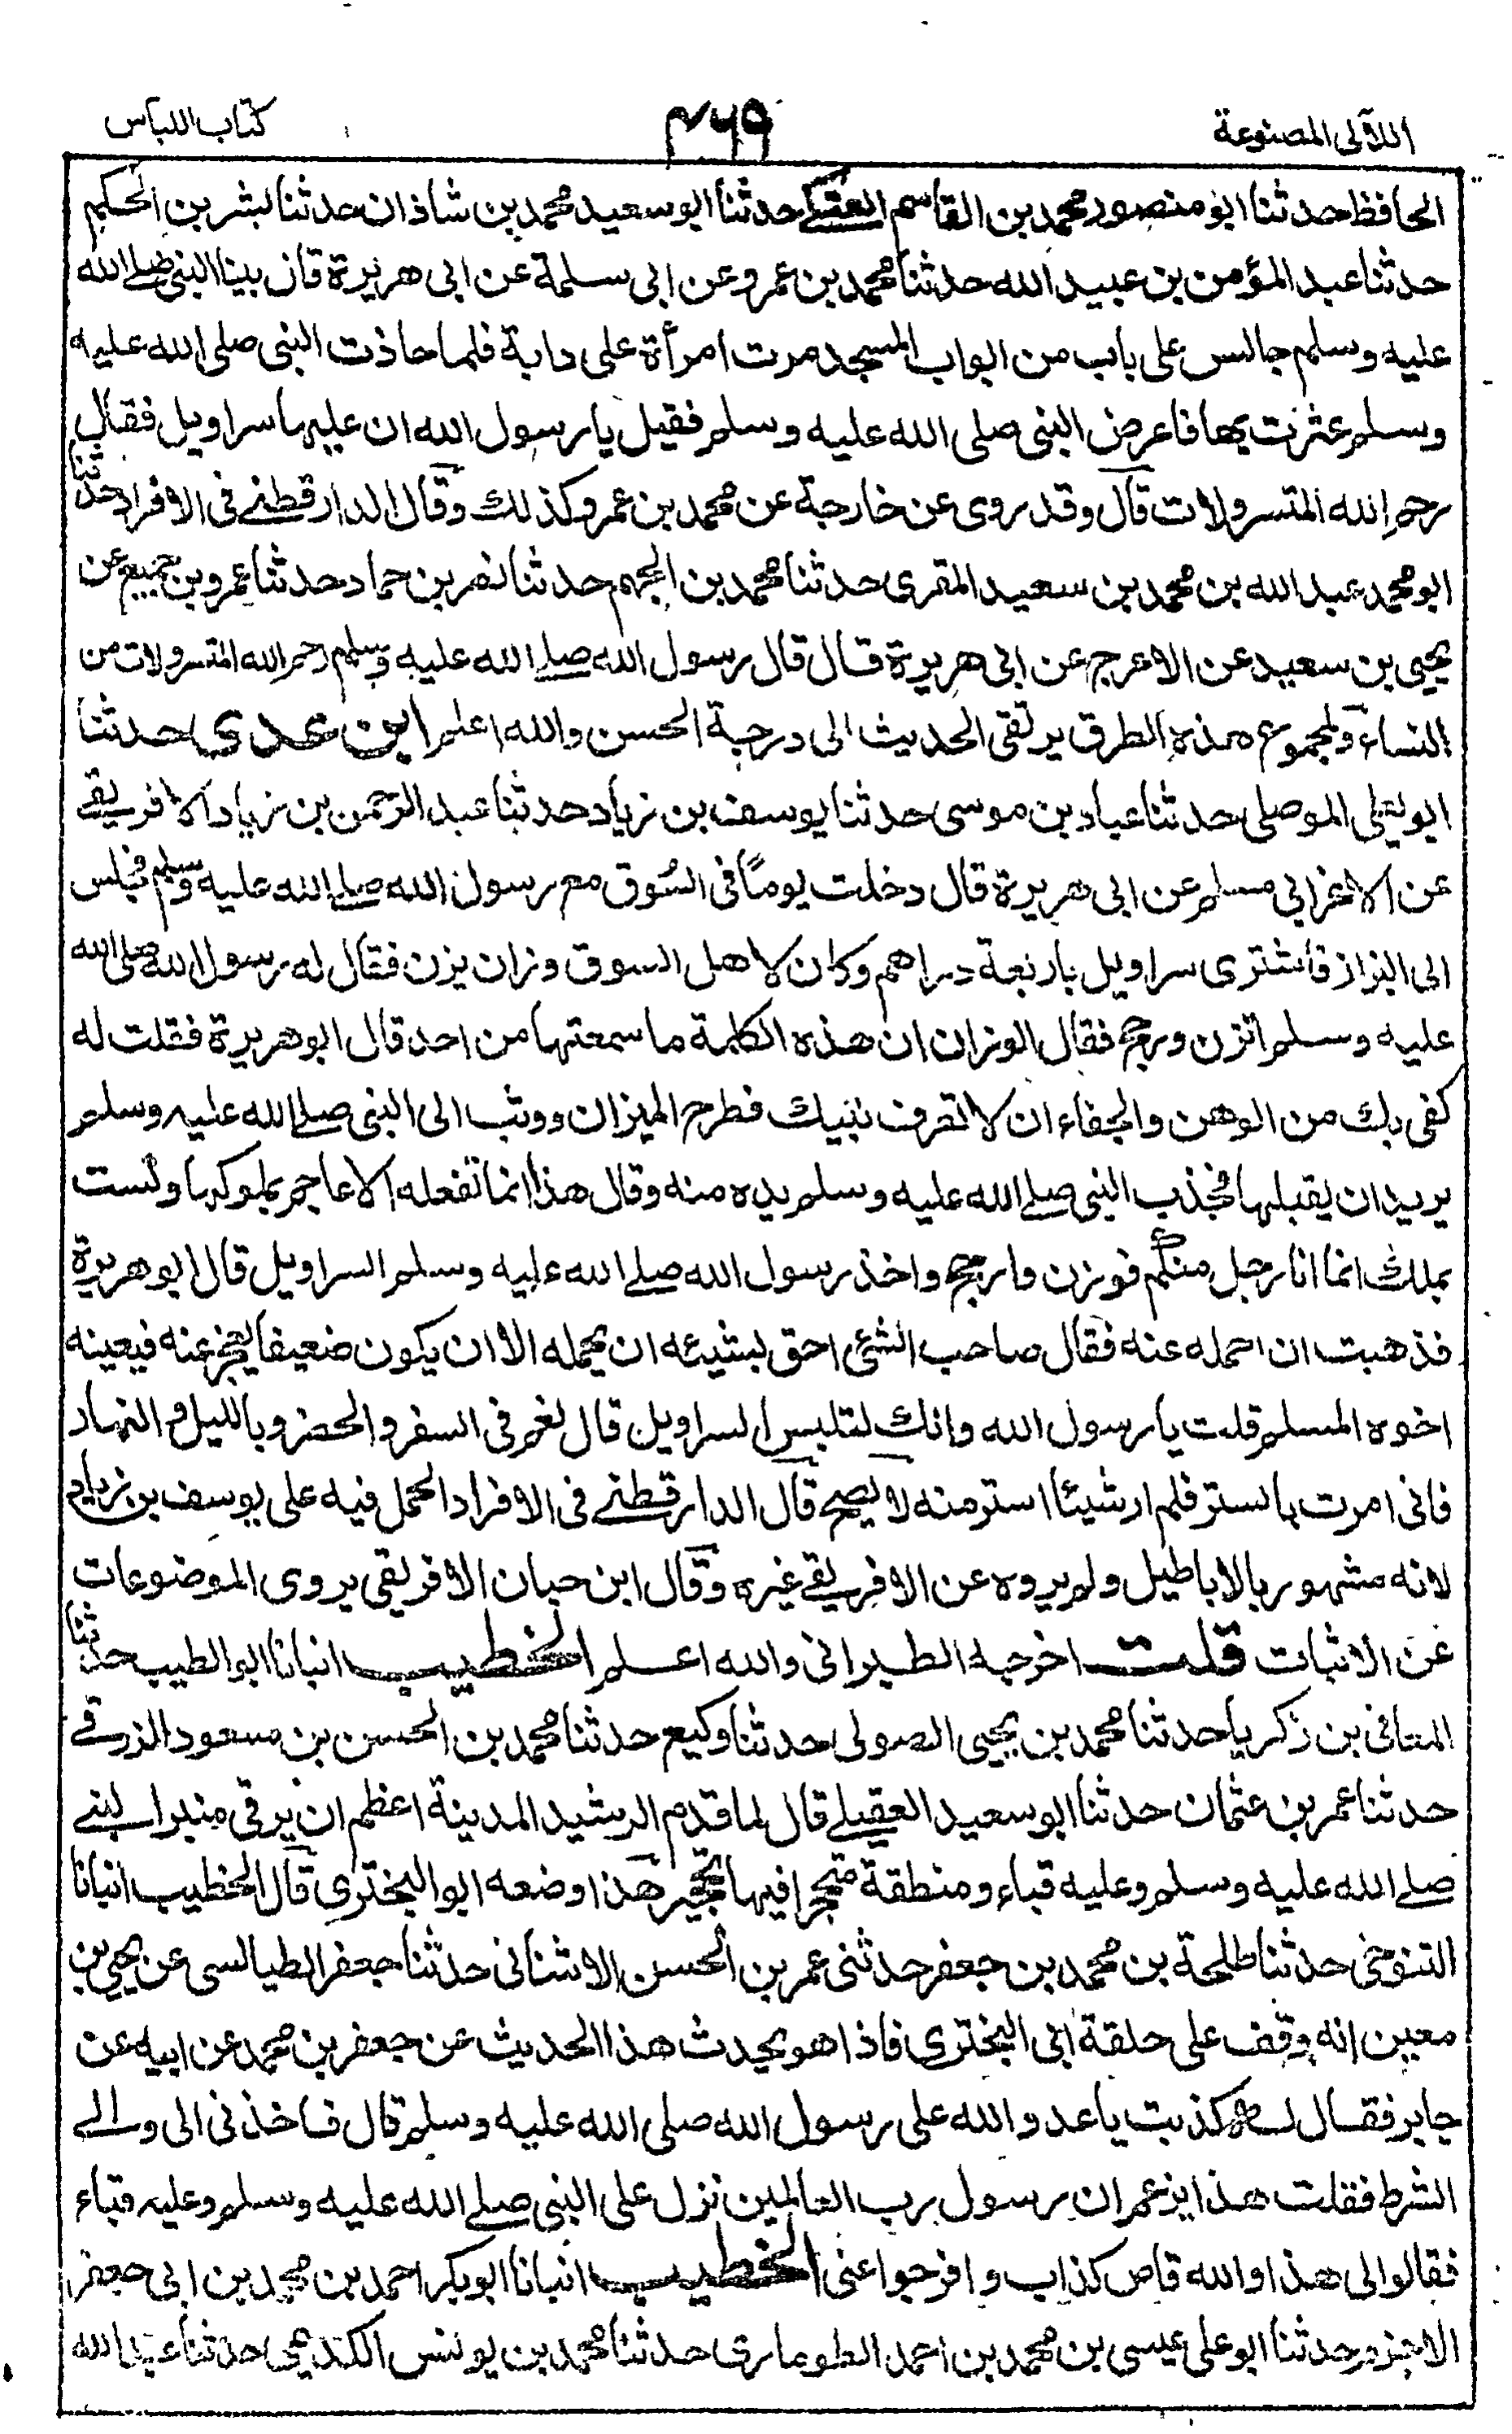 اللآلى المصنوعة
۴۶۵
كتاب اللباس
الحافظ حدثنا ابو منصور محمد بن القاسم العتكى حدثنا ابو سعيد محمد بن شاذان حدثنا بشر بن الحكيم
حدثنا عبد المؤمن بن عبيد الله حدثنا محمد بن عمرو عن ابى سلمة عن ابى هريرة قال بينا النبى صلى الله
عليه وسلم جالس على باب من ابواب المسجد مرت امرأة على دابة فلما حاذت النبى صلى الله عليه
وسلم عثرت بها فاعرض النبى صلى الله عليه وسلم فقيل يا رسول الله ان عليها سراويل فقال
رحم الله المتسرولات قال وقد روى عن خارجة عن محمد بن عمرو كذلك وقال الدارقطنى فى الافراد حدثنا
ابو محمد عبد الله بن محمد بن سعيد المقرى حدثنا محمد بن الجهم حدثنا نصر بن حماد حدثنا عمرو بن جميع عن
يحيى بن سعيد عن الاعرج عن ابى هريرة قال قال رسول الله صلى الله عليه وسلم رحم الله المتسرولات من
النساء وبمجموع هذه الطرق يرتقى الحديث الى درجة الحسن والله اعلم ابن عدى حدثنا
ابو يعلى الموصلى حدثنا عباد بن موسى حدثنا يوسف بن زياد حدثنا عبد الرحمن بن زياد الافريقى
عن الاغر ابى مسلم عن ابى هريرة قال دخلت يومًا فى السُوق مع رسول الله صلى الله عليه وسلم فجلس
الى البزاز فاشترى سراويل باربعة دراهم وكان لاهل السوق وزان يزن فقال له رسول الله صلى الله
عليه وسلم اتزن وارجح فقال الوزان ان هذه الكلمة ما سمعتها من احد قال ابو هريرة فقلت له
كفى بك من الوهن والجفاء ان لا تعرف نبيك فطرح الميزان ووثب الى النبى صلى الله عليه وسلم
يريد ان يقبلها فجذب النبى صلى الله عليه وسلم يده منه وقال هذا انما تفعله الاعاجم بملوكها ولست
بملك انما انا رجل منكم فوزن وارجح واخذ رسول الله صلى الله عليه وسلم السراويل قال ابو هريرة
فذهبت ان احمله عنه فقال صاحب الشئ احق بشيئه ان يحمله الا ان يكون ضعيفا يعجز عنه فيعينه
اخوه المسلم قلت يا رسول الله وانك لتلبس السراويل قال نعم فى السفر والحضر وبالليل والنهار
فانى امرت بالستر فلم ار شيئا استر منه لا يصح قال الدارقطنى فى الافراد الحمل فيه على يوسف بن زياد
لانه مشهور بالاباطيل ولم يروه عن الافريقى غيره وقال ابن حبان الافريقى يروى الموضوعات
عن الاثبات قلت اخرجه الطبرانى والله اعلم الخطيب انبانا ابو الطيب حدثنا
المعافى بن زكريا حدثنا محمد بن يحيى الصولى حدثنا وكيع حدثنا محمد بن الحسن بن مسعود الزرقى
حدثنا عمر بن عثمان حدثنا ابو سعيد العقيلى قال لما قدم الرشيد المدينة اعظم ان يرقى منبر النبى
صلى الله عليه وسلم وعليه قباء ومنطقة فيها هذا وضعه ابو البخترى قال الخطيب انبانا
التنوخى حدثنا طلحة بن محمد بن جعفر حدثنى عمر بن الحسن الاشنانى حدثنا جعفر الطيالسى عن يحيى بن
معين انه وقف على حلقة ابى البخترى فاذا هو يحدث هذا الحديث عن جعفر بن محمد عن ابيه عن
جابر فقال له كذبت يا عدو الله على رسول الله صلى الله عليه وسلم قال فاخذنى الى والى
الشرط فقلت هذا يزعم ان رسول رب العالمين نزل على النبى صلى الله عليه وسلم وعليه قباء
فقالوا لى هذا والله قاص كذاب وافرجوا عنى الخطيب انبانا ابو بكر احمد بن محمد بن ابى جعفر
حدثنا ابو على عيسى بن محمد بن احمد الطومارى حدثنا محمد بن يونس الكديمى حدثنا عبد الله